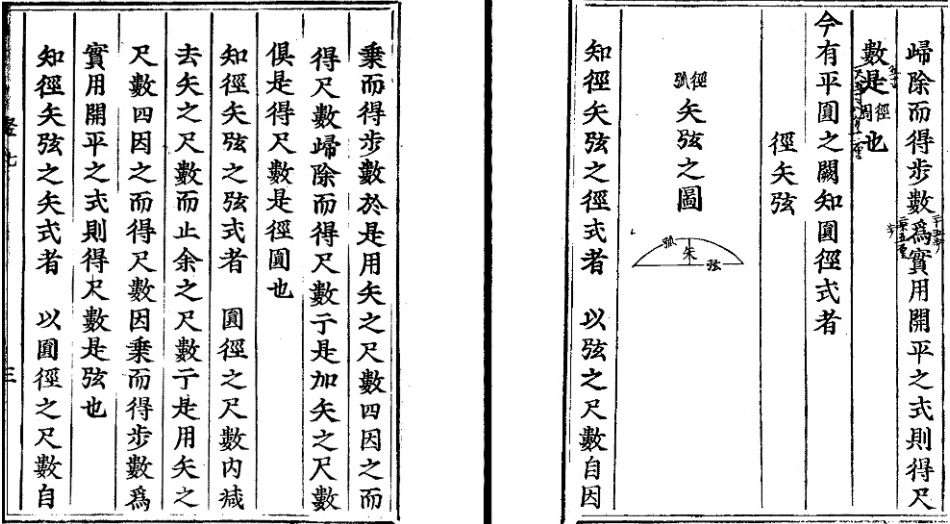 歸除而得步數爲實用開平之式則得尺
數是徑圓也
今有平圓之闕知圓徑式者
徑矢弦
徑弧矢弦之圖
弧
朱
弦
知徑矢弦之徑式者 以弦之尺數自因
乗而得步數於是用矢之尺數四因之而
得尺數歸除而得尺數于是加矢之尺數
俱是得尺數是徑圓也
知徑矢弦之弦式者 圓徑之尺數内減
去矢之尺數而止余之尺數于是用矢之
尺數四因之而得尺數因乗而得步數爲
實用開平之式則得尺數是弦也
知徑矢弦之矢式者 以圓徑之尺數自
三